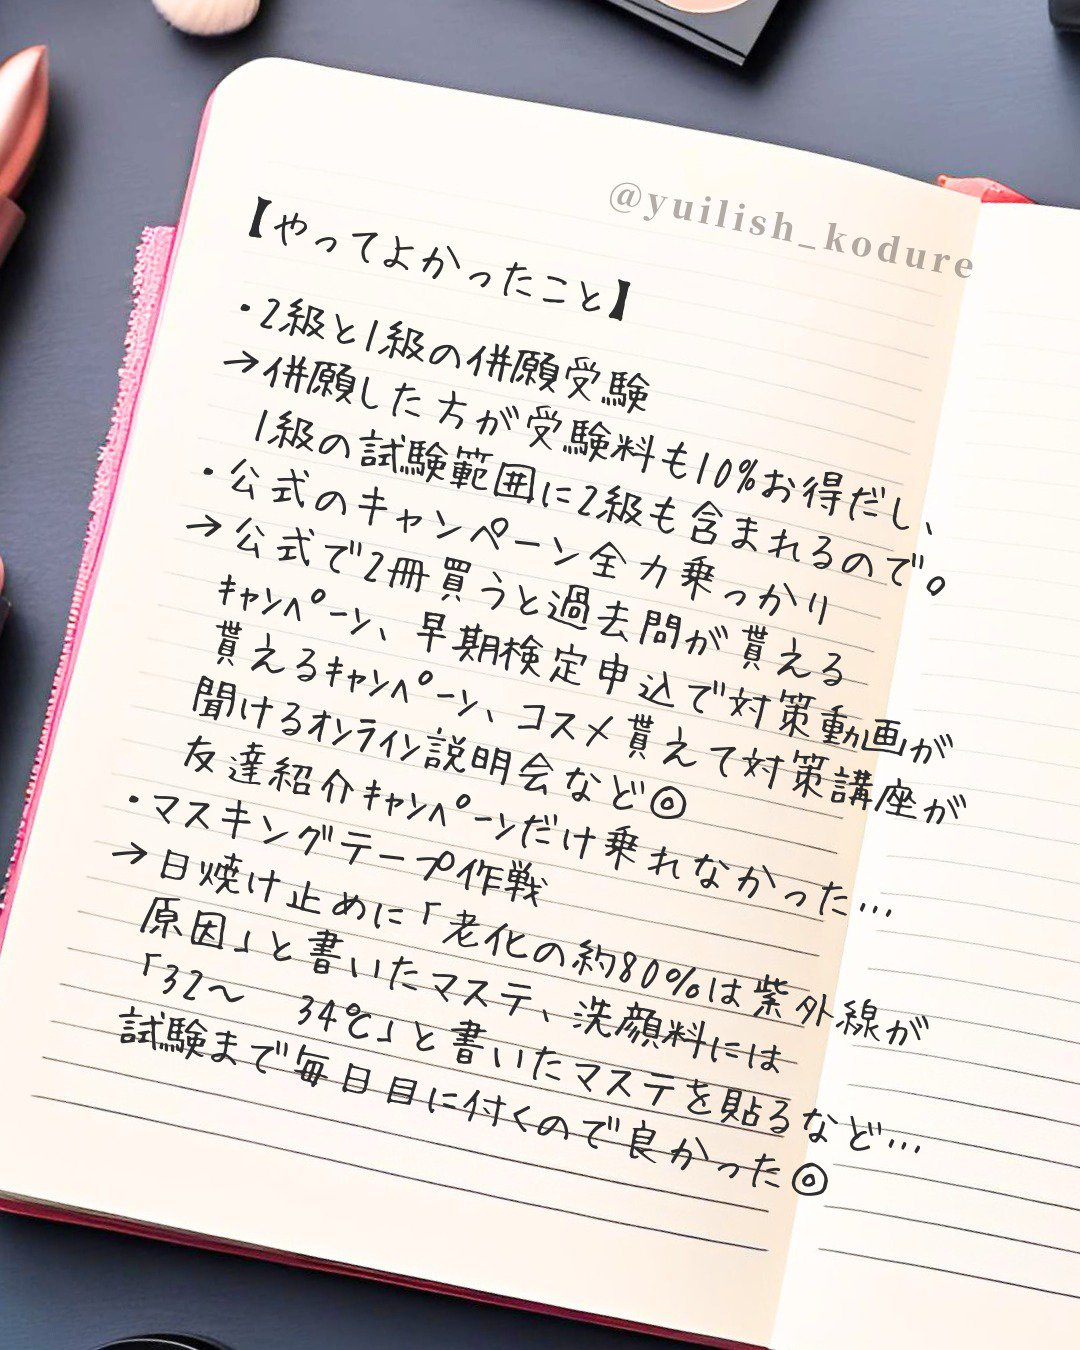 @yuilish_kodure
【やってよかったこと】
・2級と1級の併願受験
→併願した方が受験料も10%お得だし、
1級の試験範囲に2級も含まれるので。
・公式のキャンペーン全力乗っかり
→公式で2冊買うと過去問が貰える
ｷｬﾝﾍﾟｰﾝ、早期検定申込で対策動画が
貰えるｷｬﾝﾍﾟｰﾝ、コスメ貰えて対策講座が
聞けるｵﾝﾗｲﾝ説明会など◎
友達紹介ｷｬﾝﾍﾟｰﾝだけ乗れなかった…
・マスキングテープ作戦
→日焼け止めに「老化の約80%は紫外線が
原因」と書いたマステ、洗顔料には
「32〜　34℃」と書いたマステを貼るなど…
試験まで毎日目に付くので良かった◎